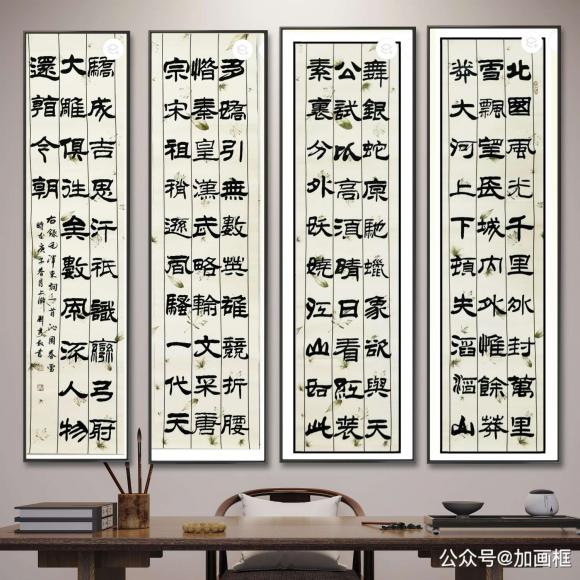 北國風光千里冰封萬里
雪飄望長城內外惟餘莽
莽大河上下頓失滔滔山
舞銀蛇原馳蠟象欲與天
公試比高須晴日看紅裝
素裹分外妖嬈江山如此
多嬌引無數英雄競折腰
惜秦皇漢武略輸文采唐
宗宋祖稍遜風騷一代天
驕成吉思汗祇識彎弓射
大雕俱往矣數風流人物
還看今朝
右錄毛澤東詞一首沁園春雪
時在庚子春月上澣書
公众号@加画框